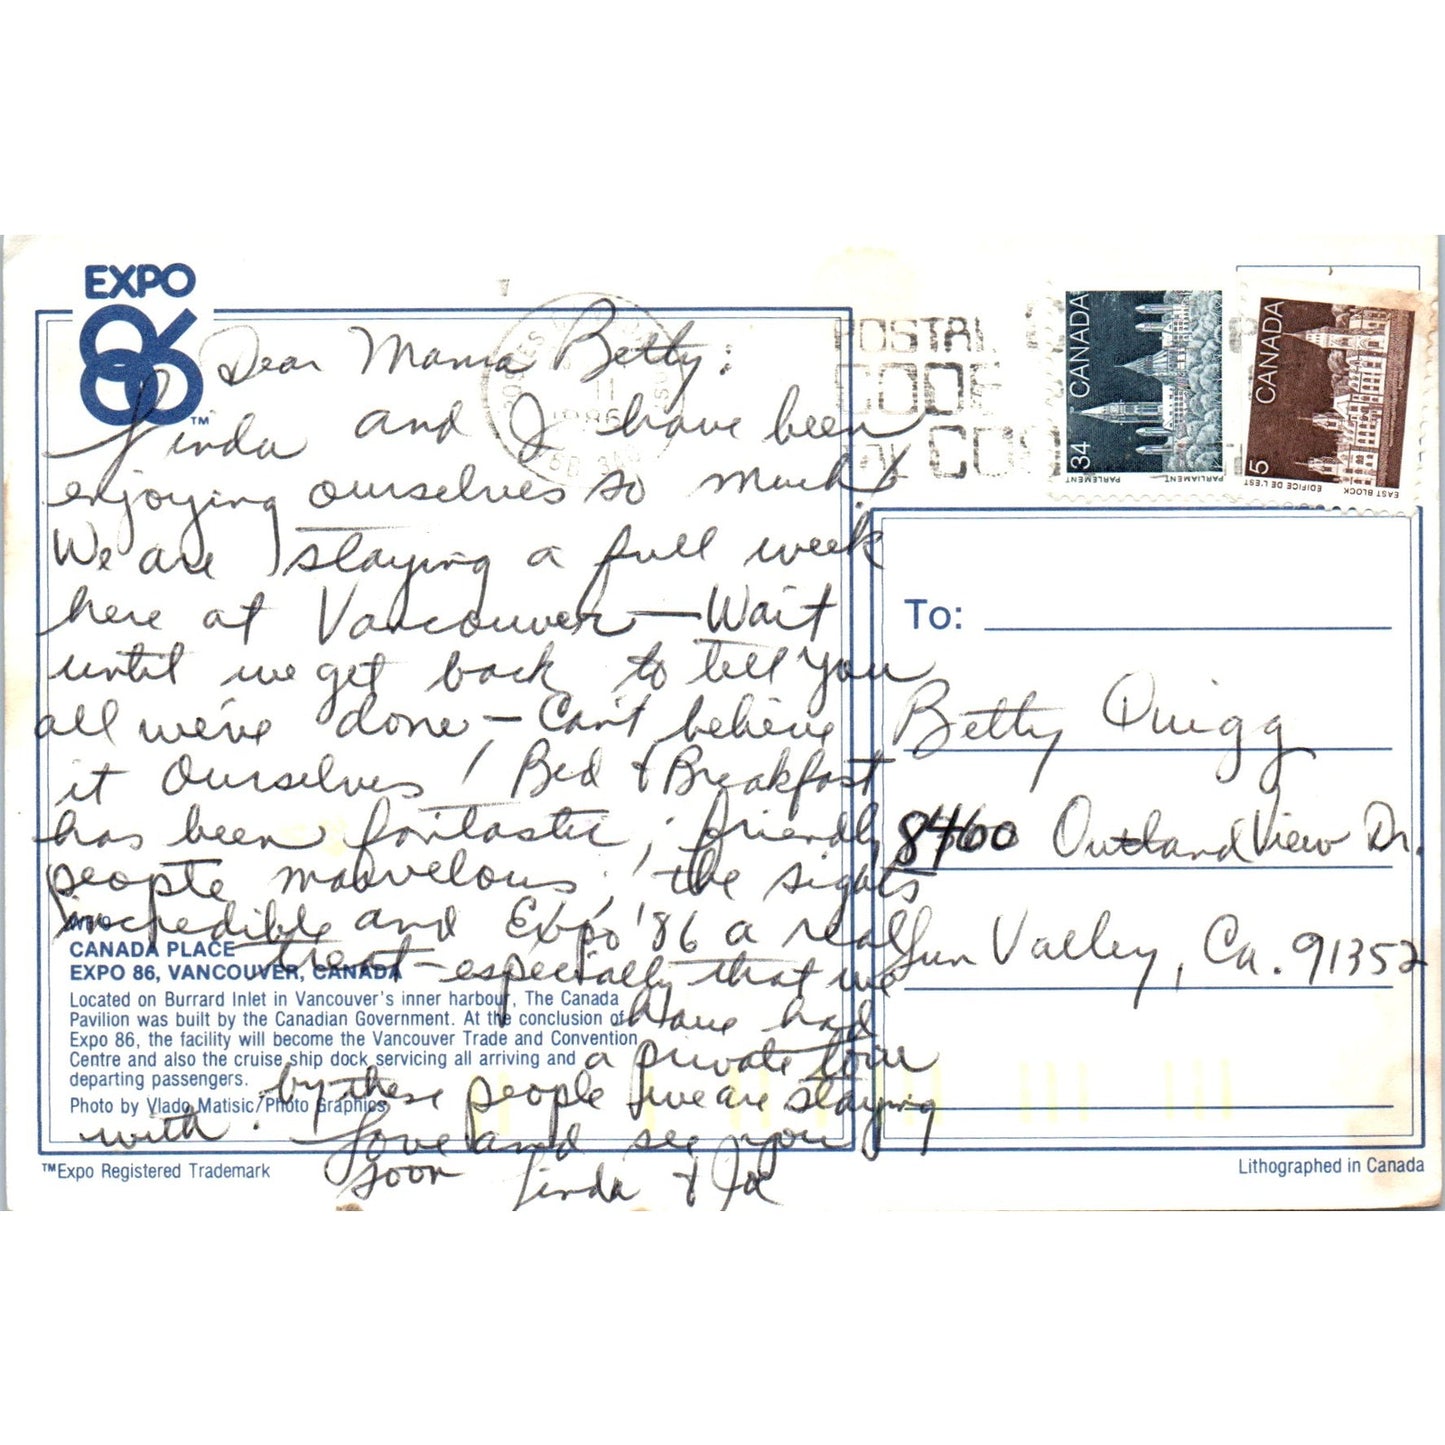 EXPO
86™
Dear Mama Betty:
Linda and I have been
enjoying ourselves so much!
We are staying a full week
here at Vancouver — Wait
until we get back to tell you
all we've done — Can't believe
it ourselves! Bed & Breakfast
has been fantastic; friendly
people marvelous; the sights
incredible and Expo '86 a real
treat — especially that we
have had
a private tour
by these people we are staying
with. Love and see you
soon Linda & Joe
CANADA PLACE
EXPO 86, VANCOUVER, CANADA
Located on Burrard Inlet in Vancouver's inner harbour, The Canada
Pavilion was built by the Canadian Government. At the conclusion of
Expo 86, the facility will become the Vancouver Trade and Convention
Centre and also the cruise ship dock servicing all arriving and
departing passengers.
Photo by Vlado Matisic/Photo Graphics
™Expo Registered Trademark
11
1986
POSTAL
CODE
CANADA
34
PARLEMENT PARLIAMENT
CANADA
5
EDIFICE DE L'EST EAST BLOCK
To:
Betty Quigg
8460 Outland View Dr.
Sun Valley, Ca. 91352
Lithographed in Canada